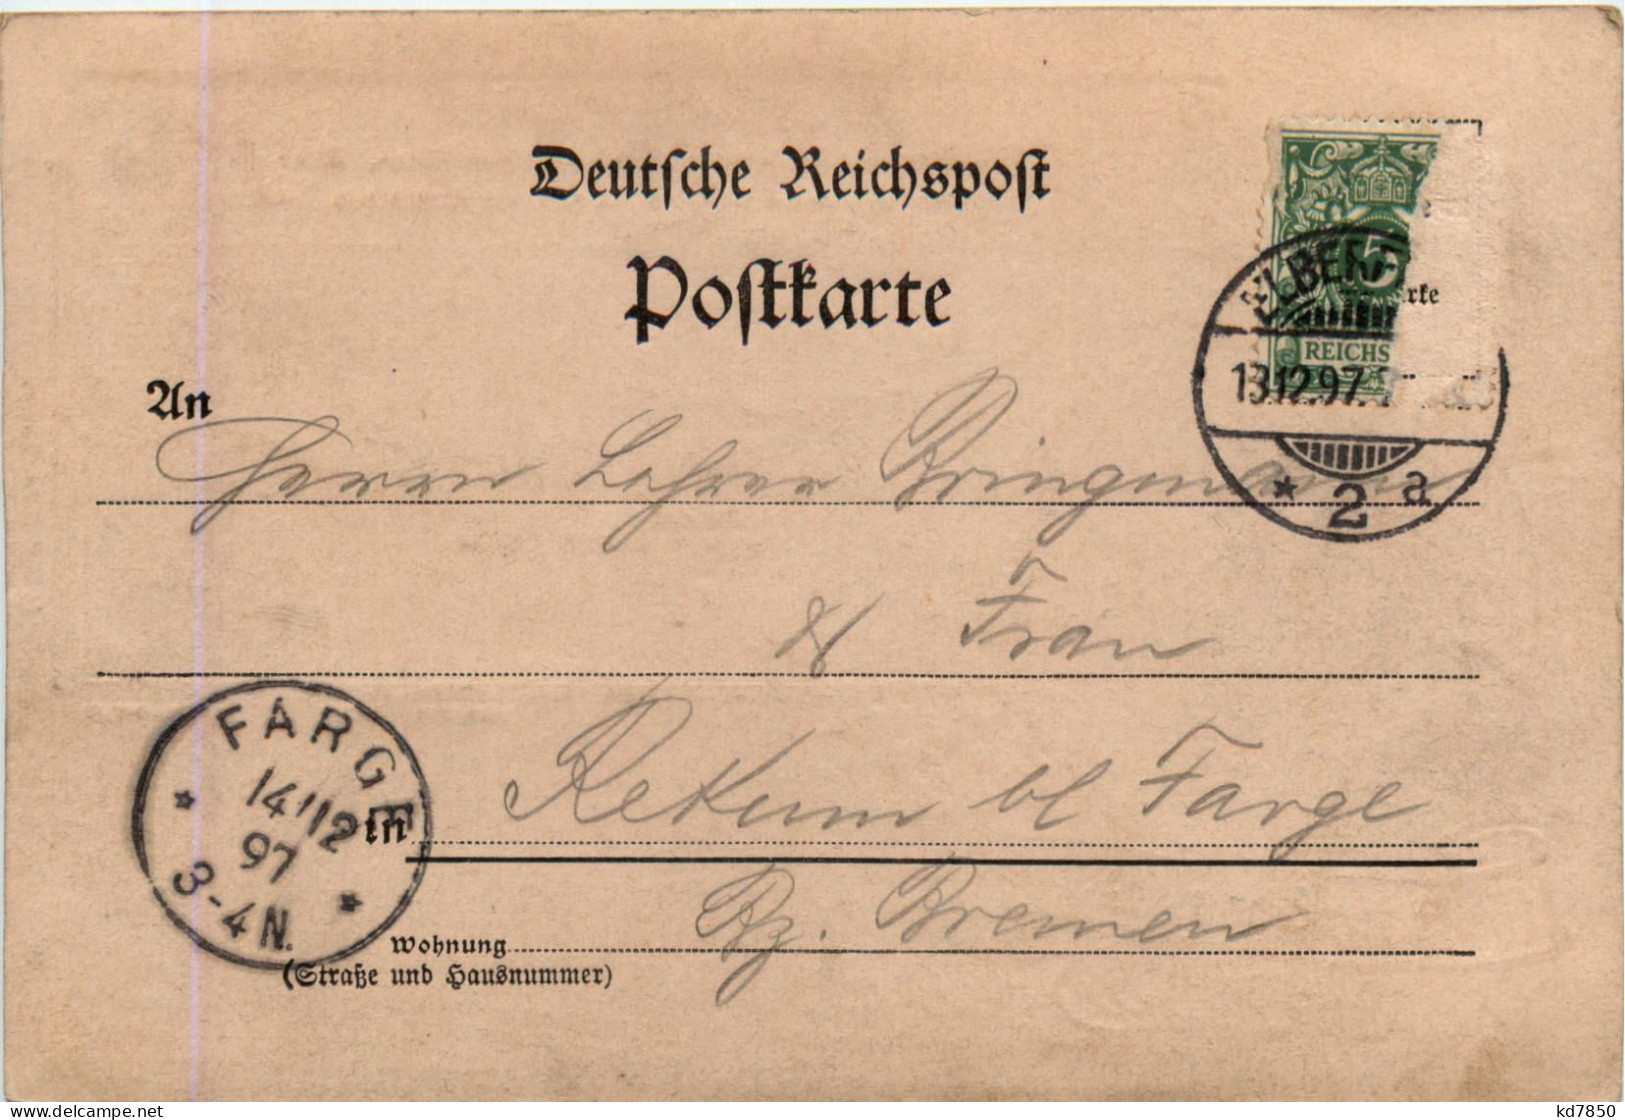 Deutsche Reichspost
Postkarte
5
REICHS
rke
ELBERF
13.12.97.
* 2 a
An
Herrn Lehrer Bringmann
& Frau
FARGE
14/12
97
3-4N.
in Rekum bl Farge
Bz. Bremen
Wohnung
(Straße und Hausnummer)
www.delcampe.net
kd7850